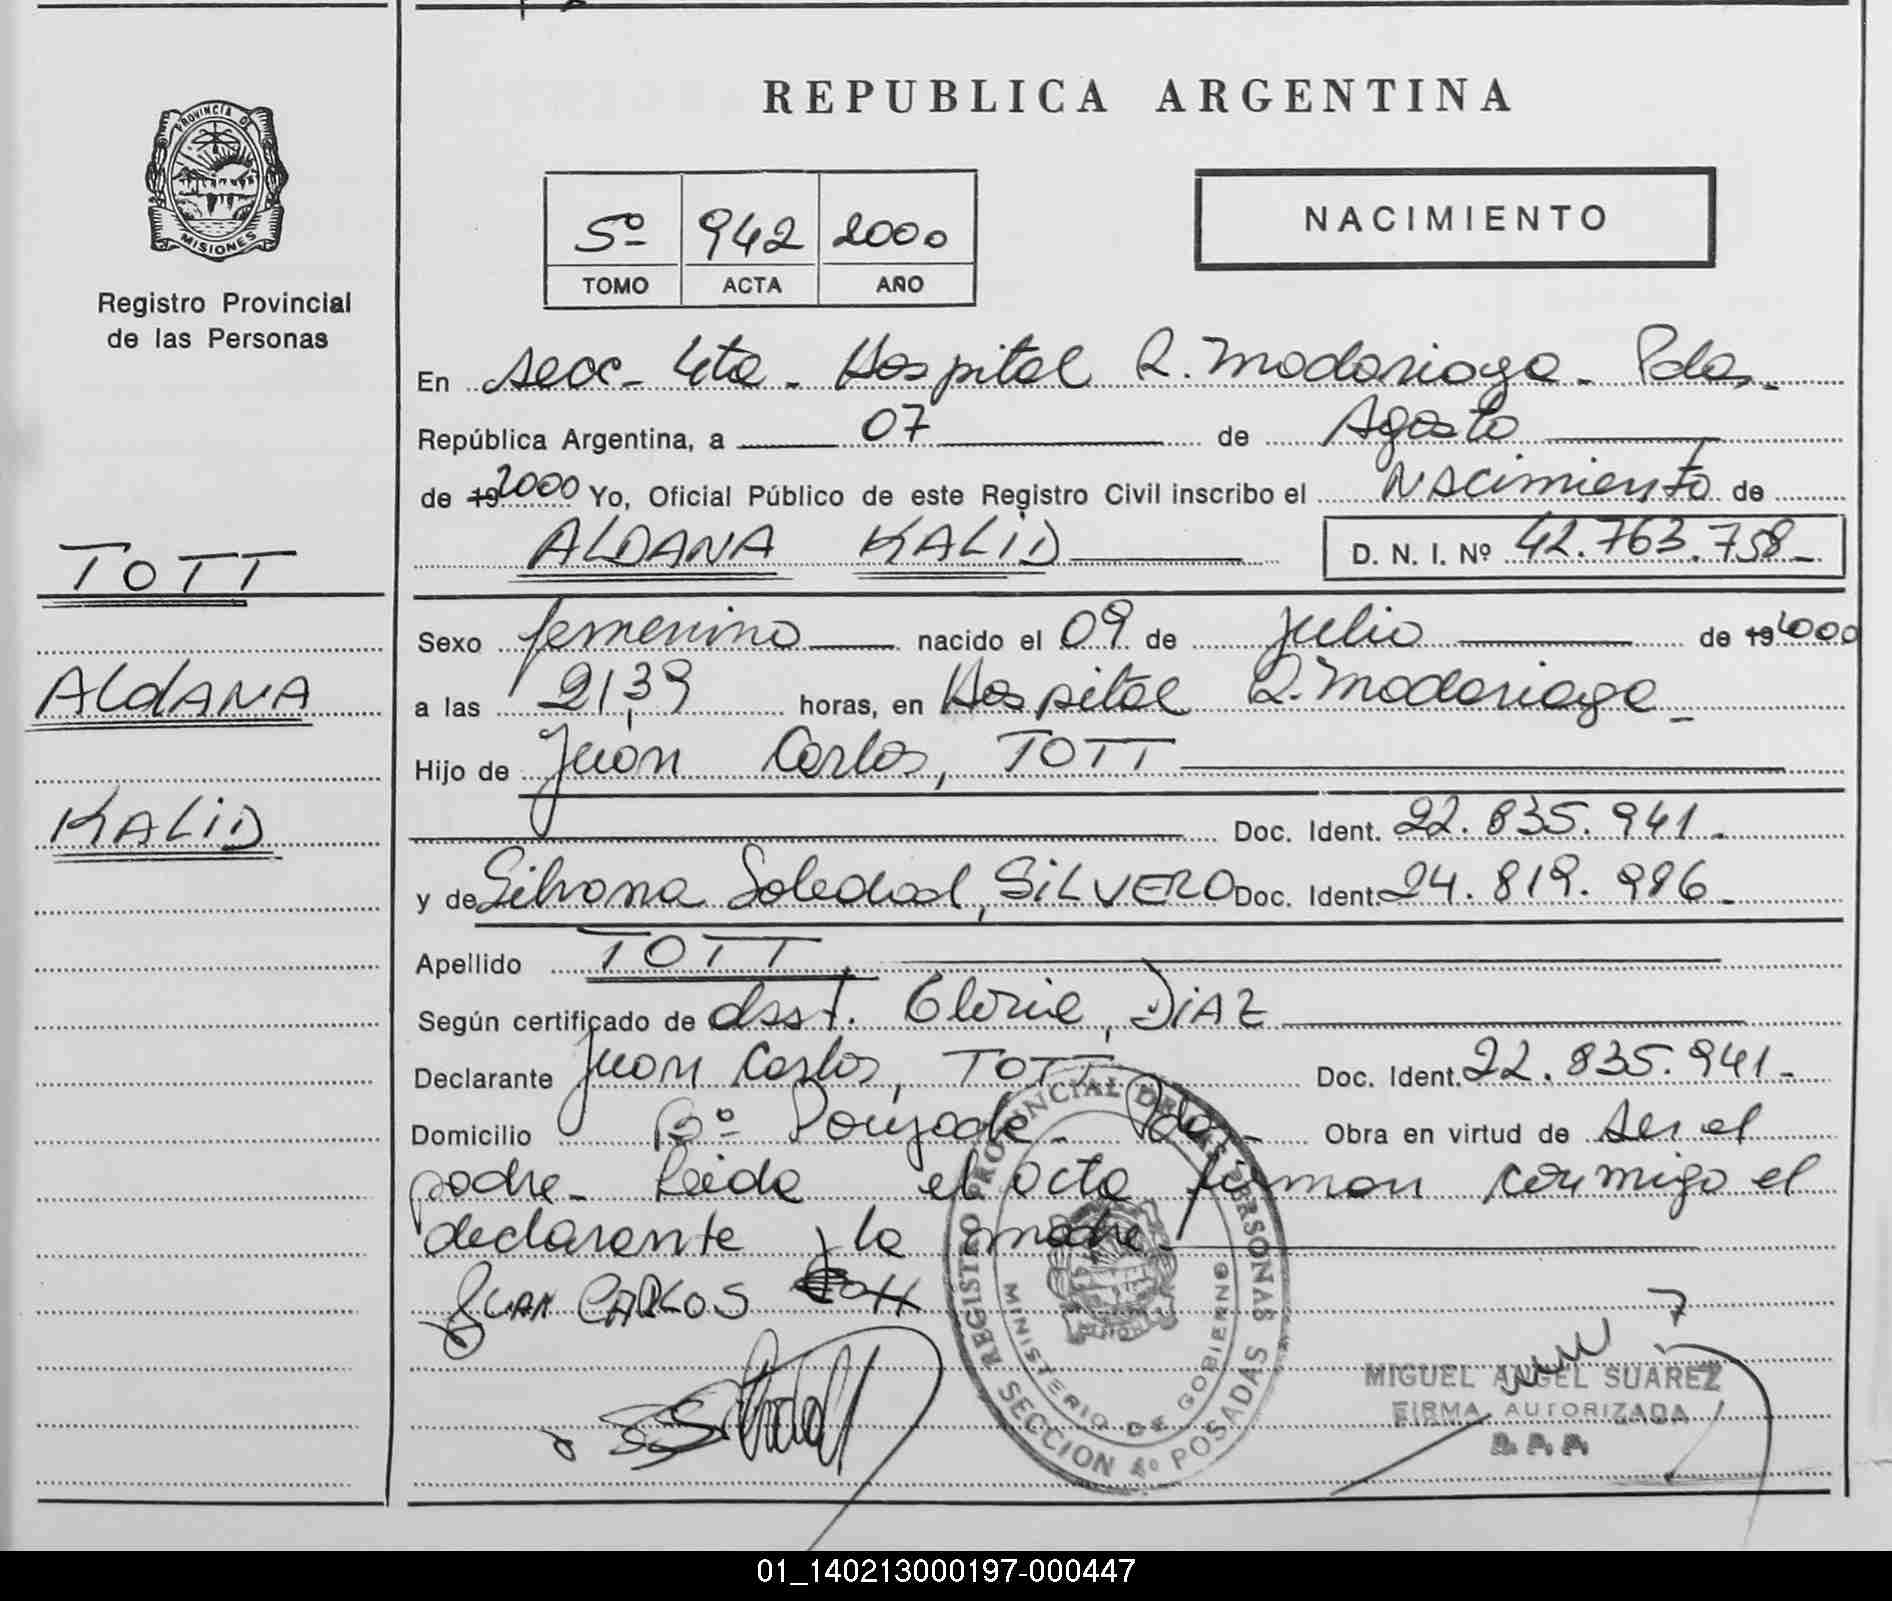 PROVINCIA DE
MISIONES
Registro Provincial
de las Personas
TOTT
ALDANA
KALID
REPUBLICA ARGENTINA
5º 942 2000
TOMO ACTA AÑO
NACIMIENTO
En secc. 4ta. Hospital R. Madariaga. Pdas.
República Argentina, a 07 de Agosto
de 19 2000 Yo, Oficial Público de este Registro Civil inscribo el Nacimiento de
ALDANA KALID D. N. I. Nº 42.763.758
Sexo femenino nacido el 09 de Julio de 19 2000
a las 21,39 horas, en Hospital R. Madariaga
Hijo de Juan Carlos, TOTT
Doc. Ident. 22.835.941.
y de Silvana Soledad, SILVERO Doc. Ident. 24.819.986.
Apellido TOTT
Según certificado de obst. Gloria, DIAZ
Declarante Juan Carlos, TOTT Doc. Ident. 22.835.941.
Domicilio Bº Poujade. Pdas. Obra en virtud de ser el
padre. Leida el acta firman conmigo el
declarante y la madre
JUAN CARLOS tott
REGISTRO PROVINCIAL DE LAS PERSONAS
MINISTERIO DE GOBIERNO
SECCION 4º POSADAS
MIGUEL ANGEL SUAREZ
FIRMA AUTORIZADA
01_140213000197-000447